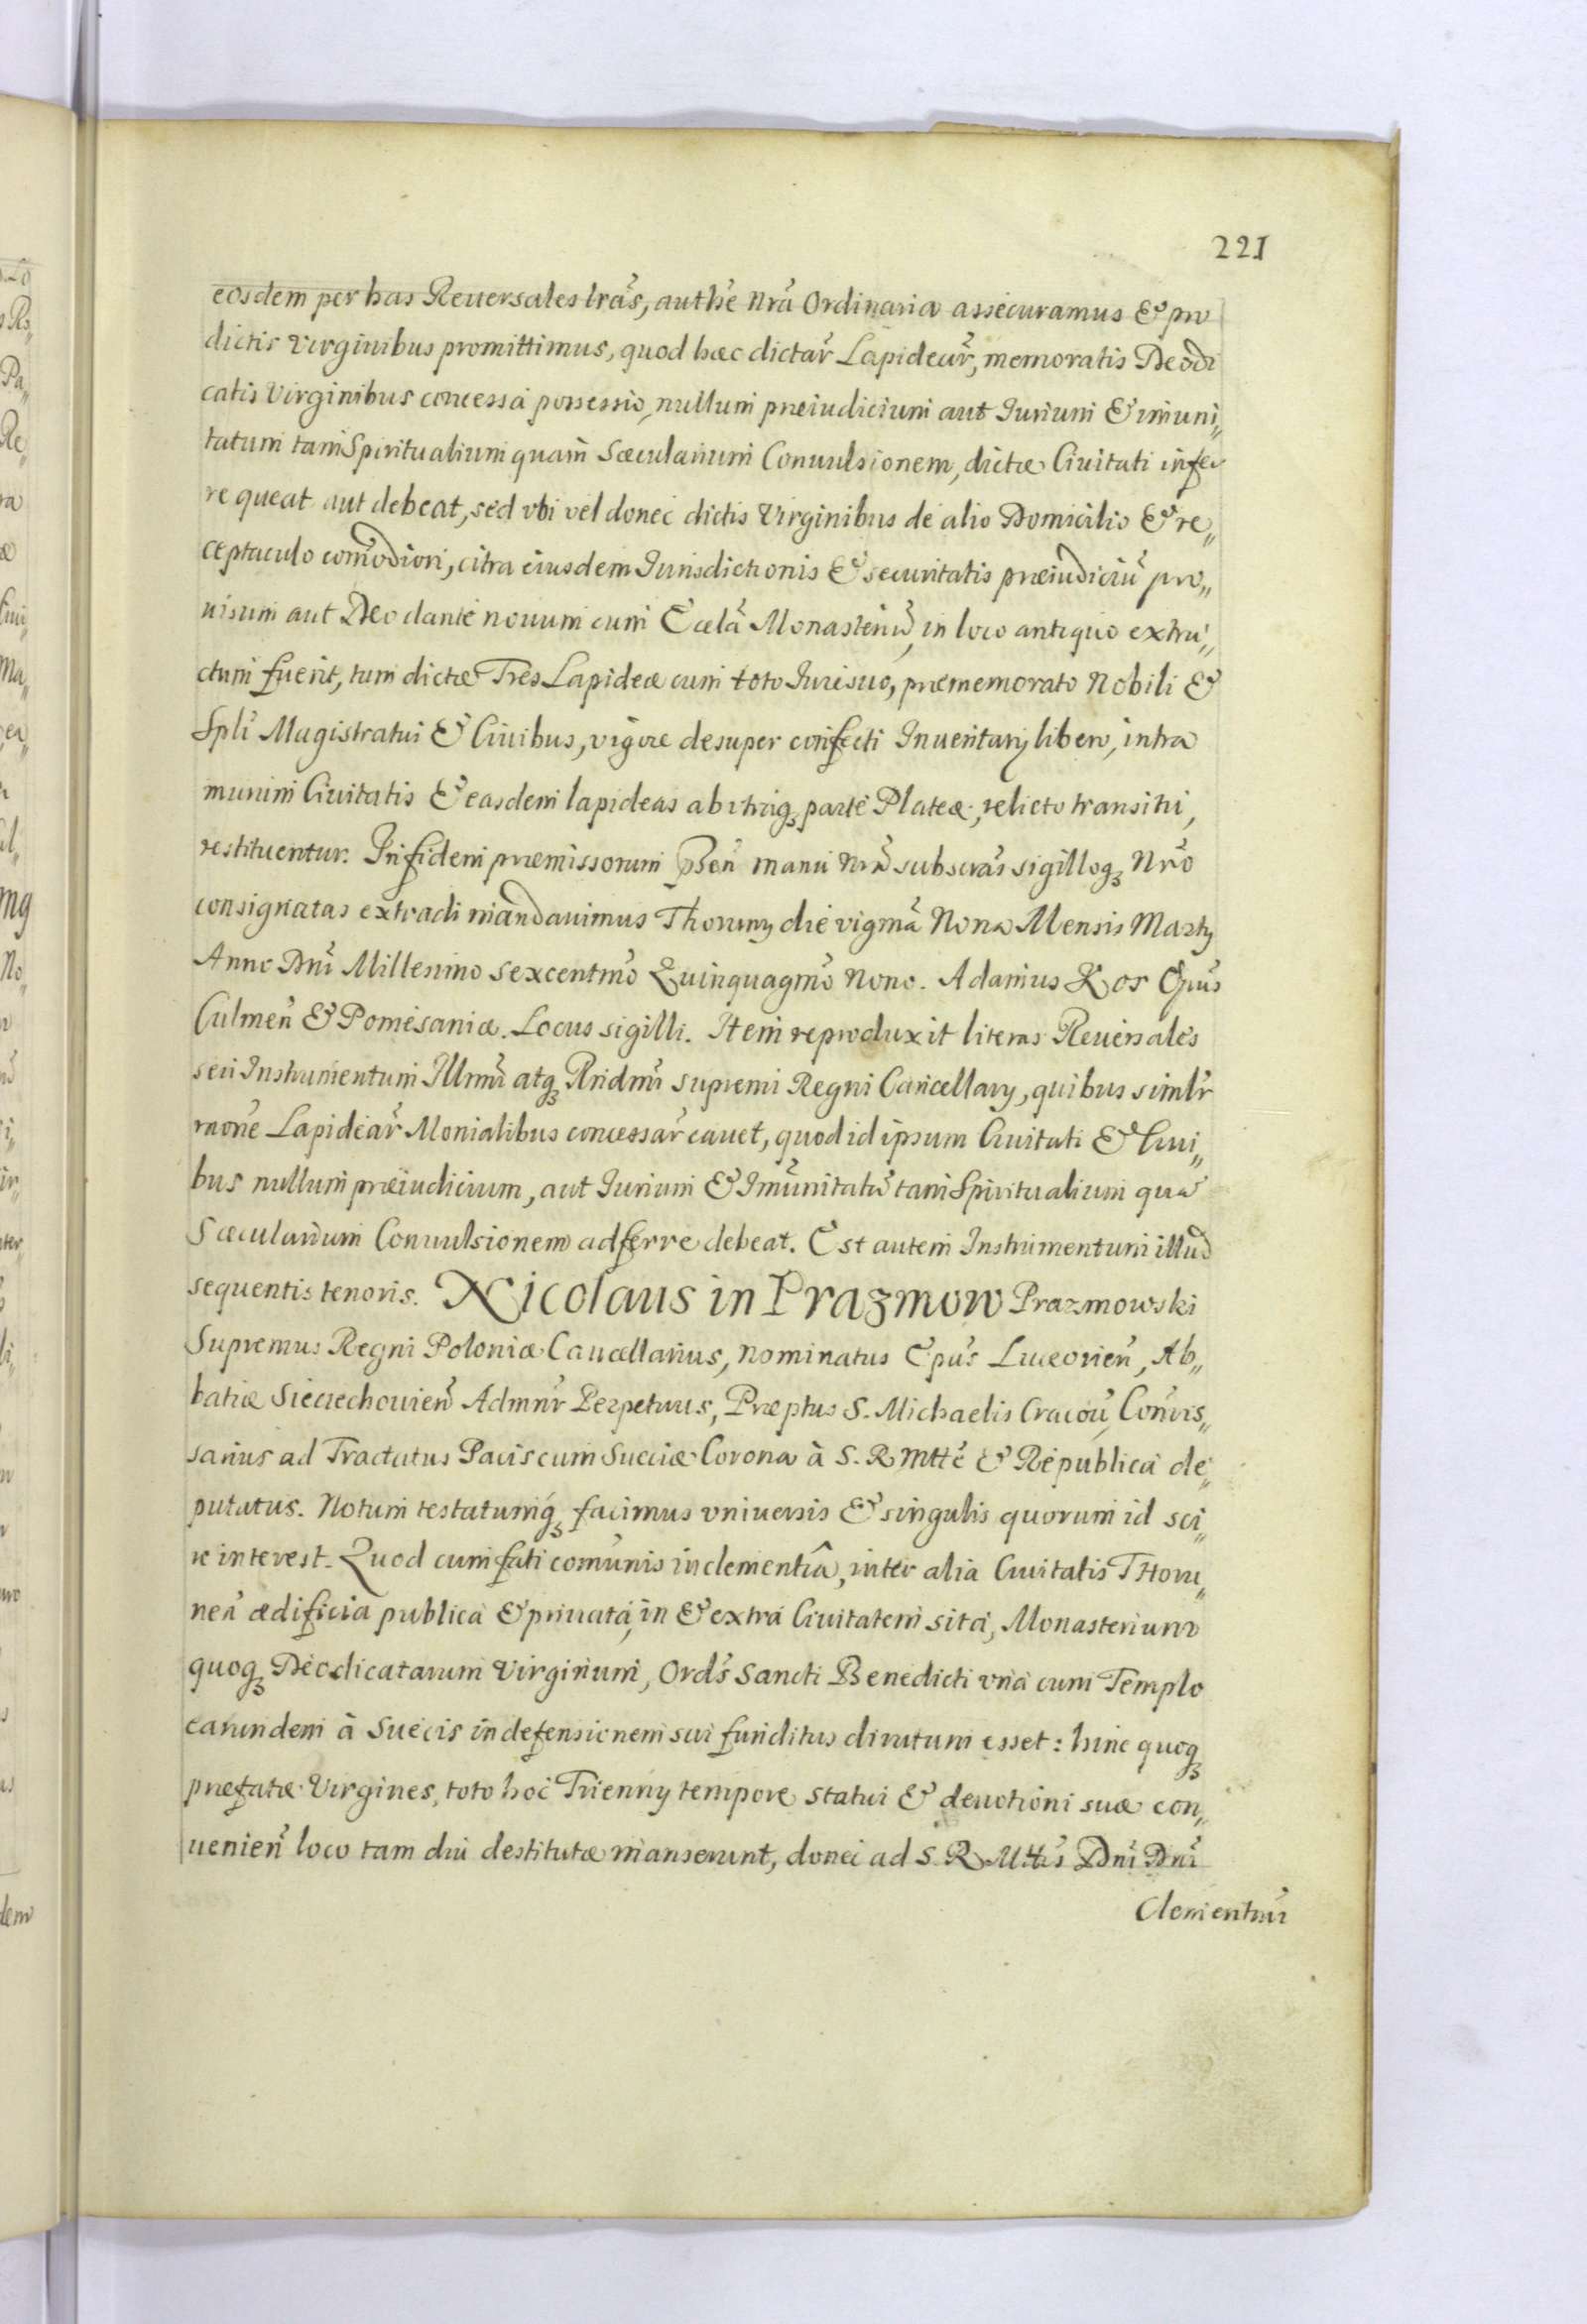 221
eosdem per has Reuersales lrãs, authẽ Nrã Ordinaria assecuramus & pro
dictis Virginibus promittimus, quod hæc dictar̃ Lapidear̃, memoratis Deodi
catis Virginibus concessa possessio, nullum præiudicium aut Iurium & imuni„
tatum tam Spiritualium quam Sæcularium Conuulsionem, dictæ Ciuitati infer
re queat aut debeat, sed vbi vel donec dictis Virginibus de alio Domicilio & re„
ceptaculo com̃odiori, citra eiusdem Iurisdictionis & securitatis præiudiciũ pro„
uisum aut Deo dante nouum cum Ecclã Monasteriũ, in loco antiquo extru„
ctum fuerit, tum dictæ Tres Lapideæ cum toto Iure suo, præmemorato Nobili &
Spli Magistratui & Ciuibus, vigore desuper confecti Inuentarij libero, intra
munim Ciuitatis & easdem lapideas ab vtriq₃ parte Plateæ, relicto transitu,
restituentur. In fidem præmissorum p̃sen̄ manu Nrã subscrãs sigilloq₃ Nrõ
consignatas extradi mandauimus Thoruny die vigmã Nona Mensis Martij
Anno Dni Millesimo sexcentmõ Quinquagmõ Nono. Adamus Kos Epũs
Culmen̄ & Pomesaniæ. Locus sigilli. Item reproduxit literas Reuersales
seu Instrumentum Illmi atq₃ Rndmi supremi Regni Cancellarij, quibus similr̃
rnõne Lapidear̃ Monialibus concessar̃ cauet, quod id ipsum Ciuitati & Ciui„
bus nullum præiudicium, aut Iurium & Im̃unitatũ tam Spiritualium quã
Sæcularium Conuulsionem adferre debeat. Est autem Instrumentum illud
sequentis tenoris. Nicolaus in Prazmow Prazmowski
Supremus Regni Poloniæ Cancellarius, Nominatus Epũs Luceorien̄, Ab„
batiæ Sieciechouien̄ Admnr̃ Perpetuus, Præptus S. Michaelis Cracou̅, Com̃is„
sarius ad Tractatus Pacis cum Sueciæ Corona à S. R. Mtte & Republica de„
putatus. Notum testatumq₃ facimus vniuersis & singulis quorum id sci„
re interest. Quod cum fati com̃unis inclementiâ, inter alia Ciuitatis Thoru„
nen̄ ædificia publica & priuata, in & extra Ciuitatem sita, Monasterium
quoq₃ Deodicatarum Virginum, Ords̃ Sancti Benedicti vna cum Templo
earundem à Suecis in defensionem sui funditus dirutum esset: hinc quoq₃
præfatæ Virgines, toto hoc Triennij tempore statui & deuotioni suæ con„
uenien̄ loco tam diu destitutæ manserunt, donec ad S. R. Mttis Dni Dni
Clementmi